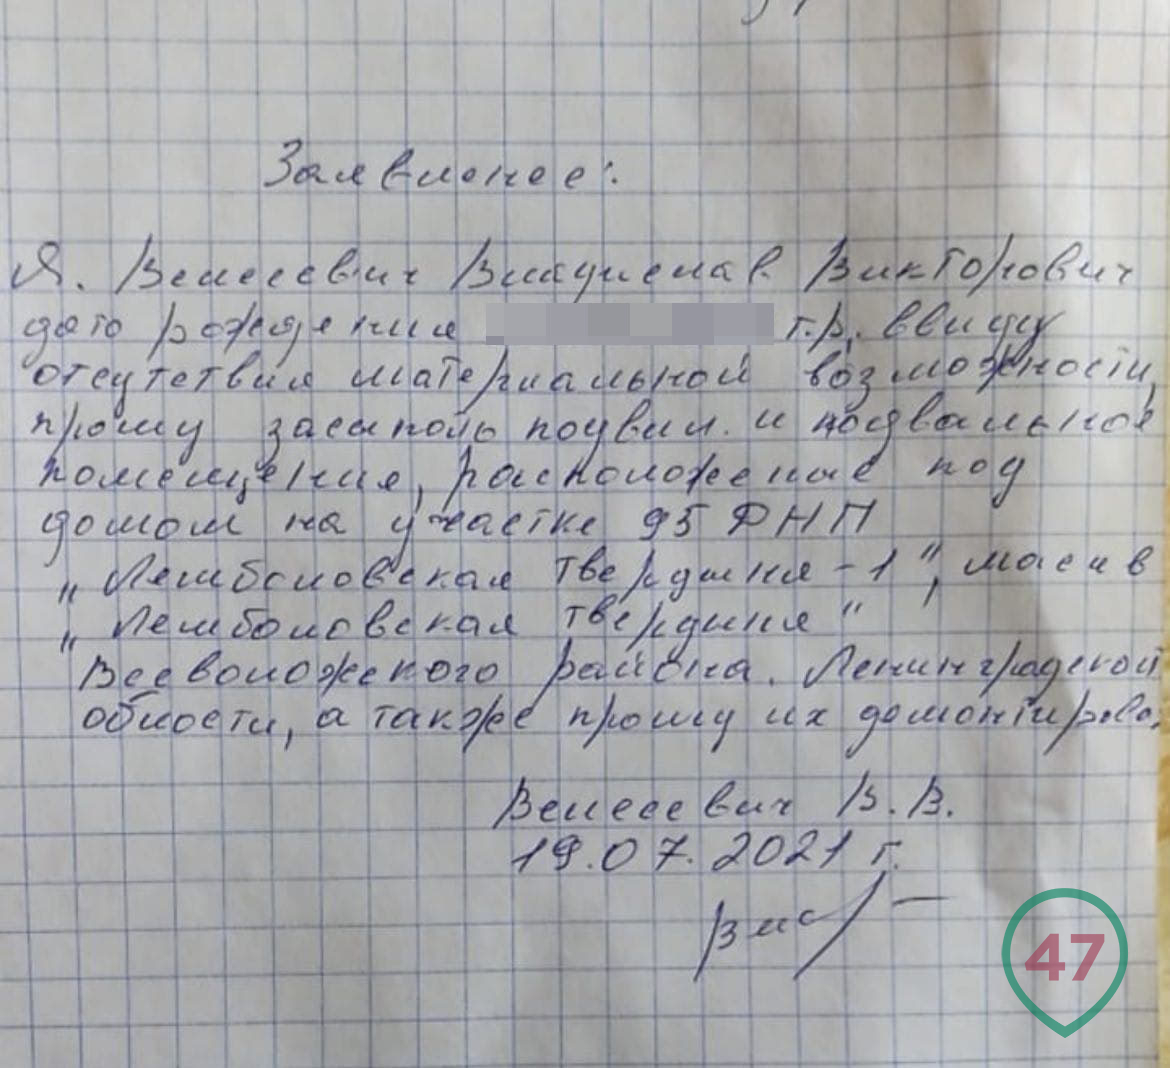 Заявление:
Я. Велесевич Владислав Викторович
дата рождения г.р. ввиду
отсутствия материальной возможности,
прошу засыпать подвал. и подвальное
помещения, расположеные под
домом на участке 95 ДНП
„Лемболовская твердыня - 1", масив
„Лемболовская твердыня"
Всеволожского района. Ленинградской
области, а также прошу их демонтирова.
Велесевич В.В.
19.07.2021 г.
47